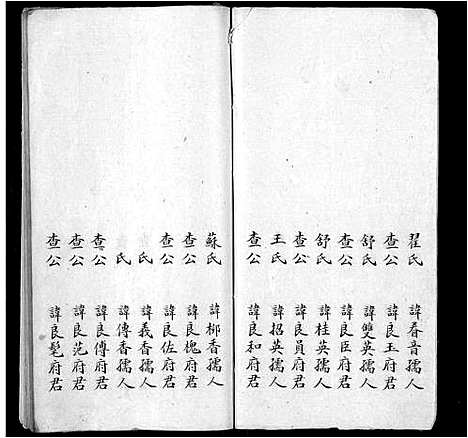 翟氏 諱春音孺人
查公 諱良玉府君
舒氏 諱雙英孺人
查公 諱良臣府君
舒氏 諱桂英孺人
查公 諱良員府君
王氏 諱招英孺人
查公 諱良和府君
蘇氏 諱鄉香孺人
查公 諱良槐府君
查公 諱良佐府君
氏 諱義香孺人
氏 諱傳香孺人
查公 諱良傳府君
查公 諱良范府君
查公 諱良髦府君